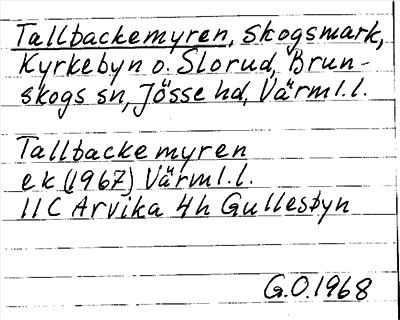 Tallbackemyren, skogsmark,
Kyrkebyn o. Slorud, Brun-
skogs sn, Jösse hd, Värml.l.
Tallbackemyren
ek (1967) Värml.l.
11C Arvika 4h Gullesbyn
G.O.1968